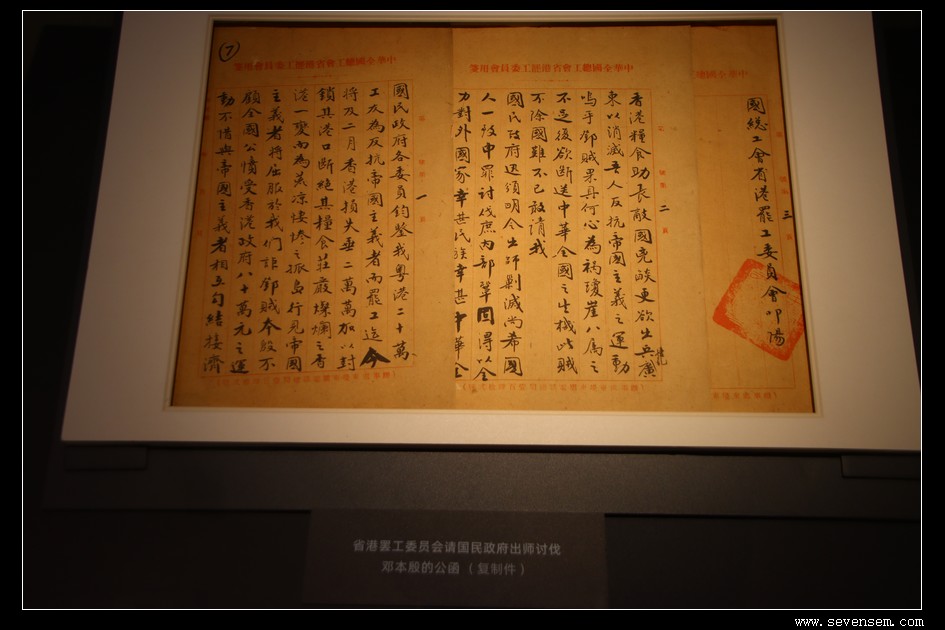 7
中華全國總工會省港罷工委員會用箋
一
國民政府各委員鈞鑒我粵港二十萬
工友為反抗帝國主義者而罷工迄今
將及二月香港損失垂二萬萬加以封
鎖其港口斷絕其糧食莊嚴燦爛之香
港一變而為荒凉悽慘之孤島行見帝國
主義者將屈服於我們詎鄧賊本殷不
顧全國公憤受香港政府八十萬元之運
動不惜與帝國主義者相互勾結接濟
中華全國總工會省港罷工委員會用箋
二
香港糧食助長敵國兇燄更欲出兵廣
東以消滅吾人反抗帝國主義之運動
嗚乎鄧賊果具何心為禍瓊崖八属之
不足後欲断送中華全國之生機此賊
不除國難不已敢請我
國民政府迅頒明令出師剿滅尚希國
人一致申罪討伐庶內部鞏固得以全
力對外國家幸甚民族幸甚中華全
中華全國
三
國總工會省港罷工委員會叩陽
省港罢工委员会请国民政府出师讨伐
邓本殷的公函（复制件）
www.sevensem.com